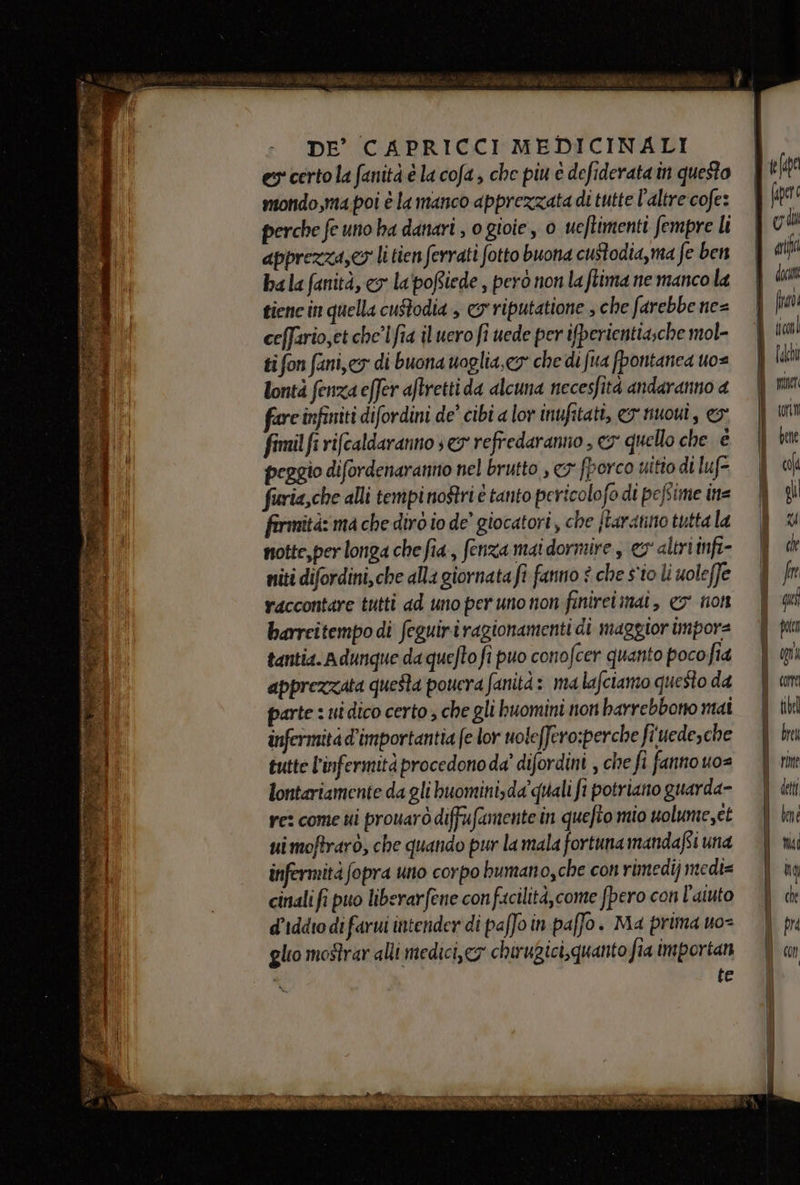 DE' CAPRICCI MEDICINALI
& certo la ſanità è la coſa, che piu è deſiderata in queſto
mondo, ma poi è la manco apprezzata di tutte l'altre coſe:
perche ſe uno ha danari, o gioie, o ueſtimenti ſempre li
apprezza, & li tien ſerrati ſotto buona cuſtodia, ma ſe ben
ha la ſanità, & la poſsiede, però non la ſtima ne manco la
tiene in quella cuſtodia, & riputatione, che ſarebbe ne=
ceſſario, et che'l ſia il uero ſi uede per iſperientia, che mol-
ti ſon ſani, & di buona uoglia, & che di ſua ſpontanea uo=
lontà ſenza eſſer aſtretti da alcuna necesſità andaranno a
fare infiniti diſordini de' cibi a lor inuſitati, & nuoui, &
ſimil ſi riſcaldaranno, & refredaranno, & quello che è
peggio diſordenaranno nel brutto, & ſporco uitio di luſ=
ſuria, che alli tempi noſtri è tanto pericoloſo di peſsime in=
firmità: ma che dirò io de' giocatori, che ſtaranno tutta la
notte, per longa che ſia, ſenza mai dormire, & altri infi-
niti diſordini, che alla giornata ſi fanno? che s'io li uoleſſe
raccontare tutti ad uno per uno non finirei mai, & non
harrei tempo di ſeguir i ragionamenti di maggior impor=
tantia. Adunque da queſto ſi puo conoſcer quanto poco ſia
apprezzata queſta pouera ſanità: ma laſciamo queſto da
parte: ui dico certo, che gli huomini non harrebbono mai
infermità d'importantia ſe lor uoleſſero: perche ſi uede, che
tutte l'infermità procedono da' diſordini, che ſi fanno uo=
lontariamente da gli huomini, da' quali ſi potriano guarda-
re: come ui prouarò diffuſamente in queſto mio uolume, et
ui moſtrarò, che quando pur la mala fortuna mandaſsi una
infermità ſopra uno corpo humano, che con rimedij medi=
cinali ſi puo liberarſene con facilità, come ſpero con l'aiuto
d'iddio di farui intender di paſſo in paſſo. Ma prima uo=
glio moſtrar alli medici, & chirugici, quanto ſia importan
te